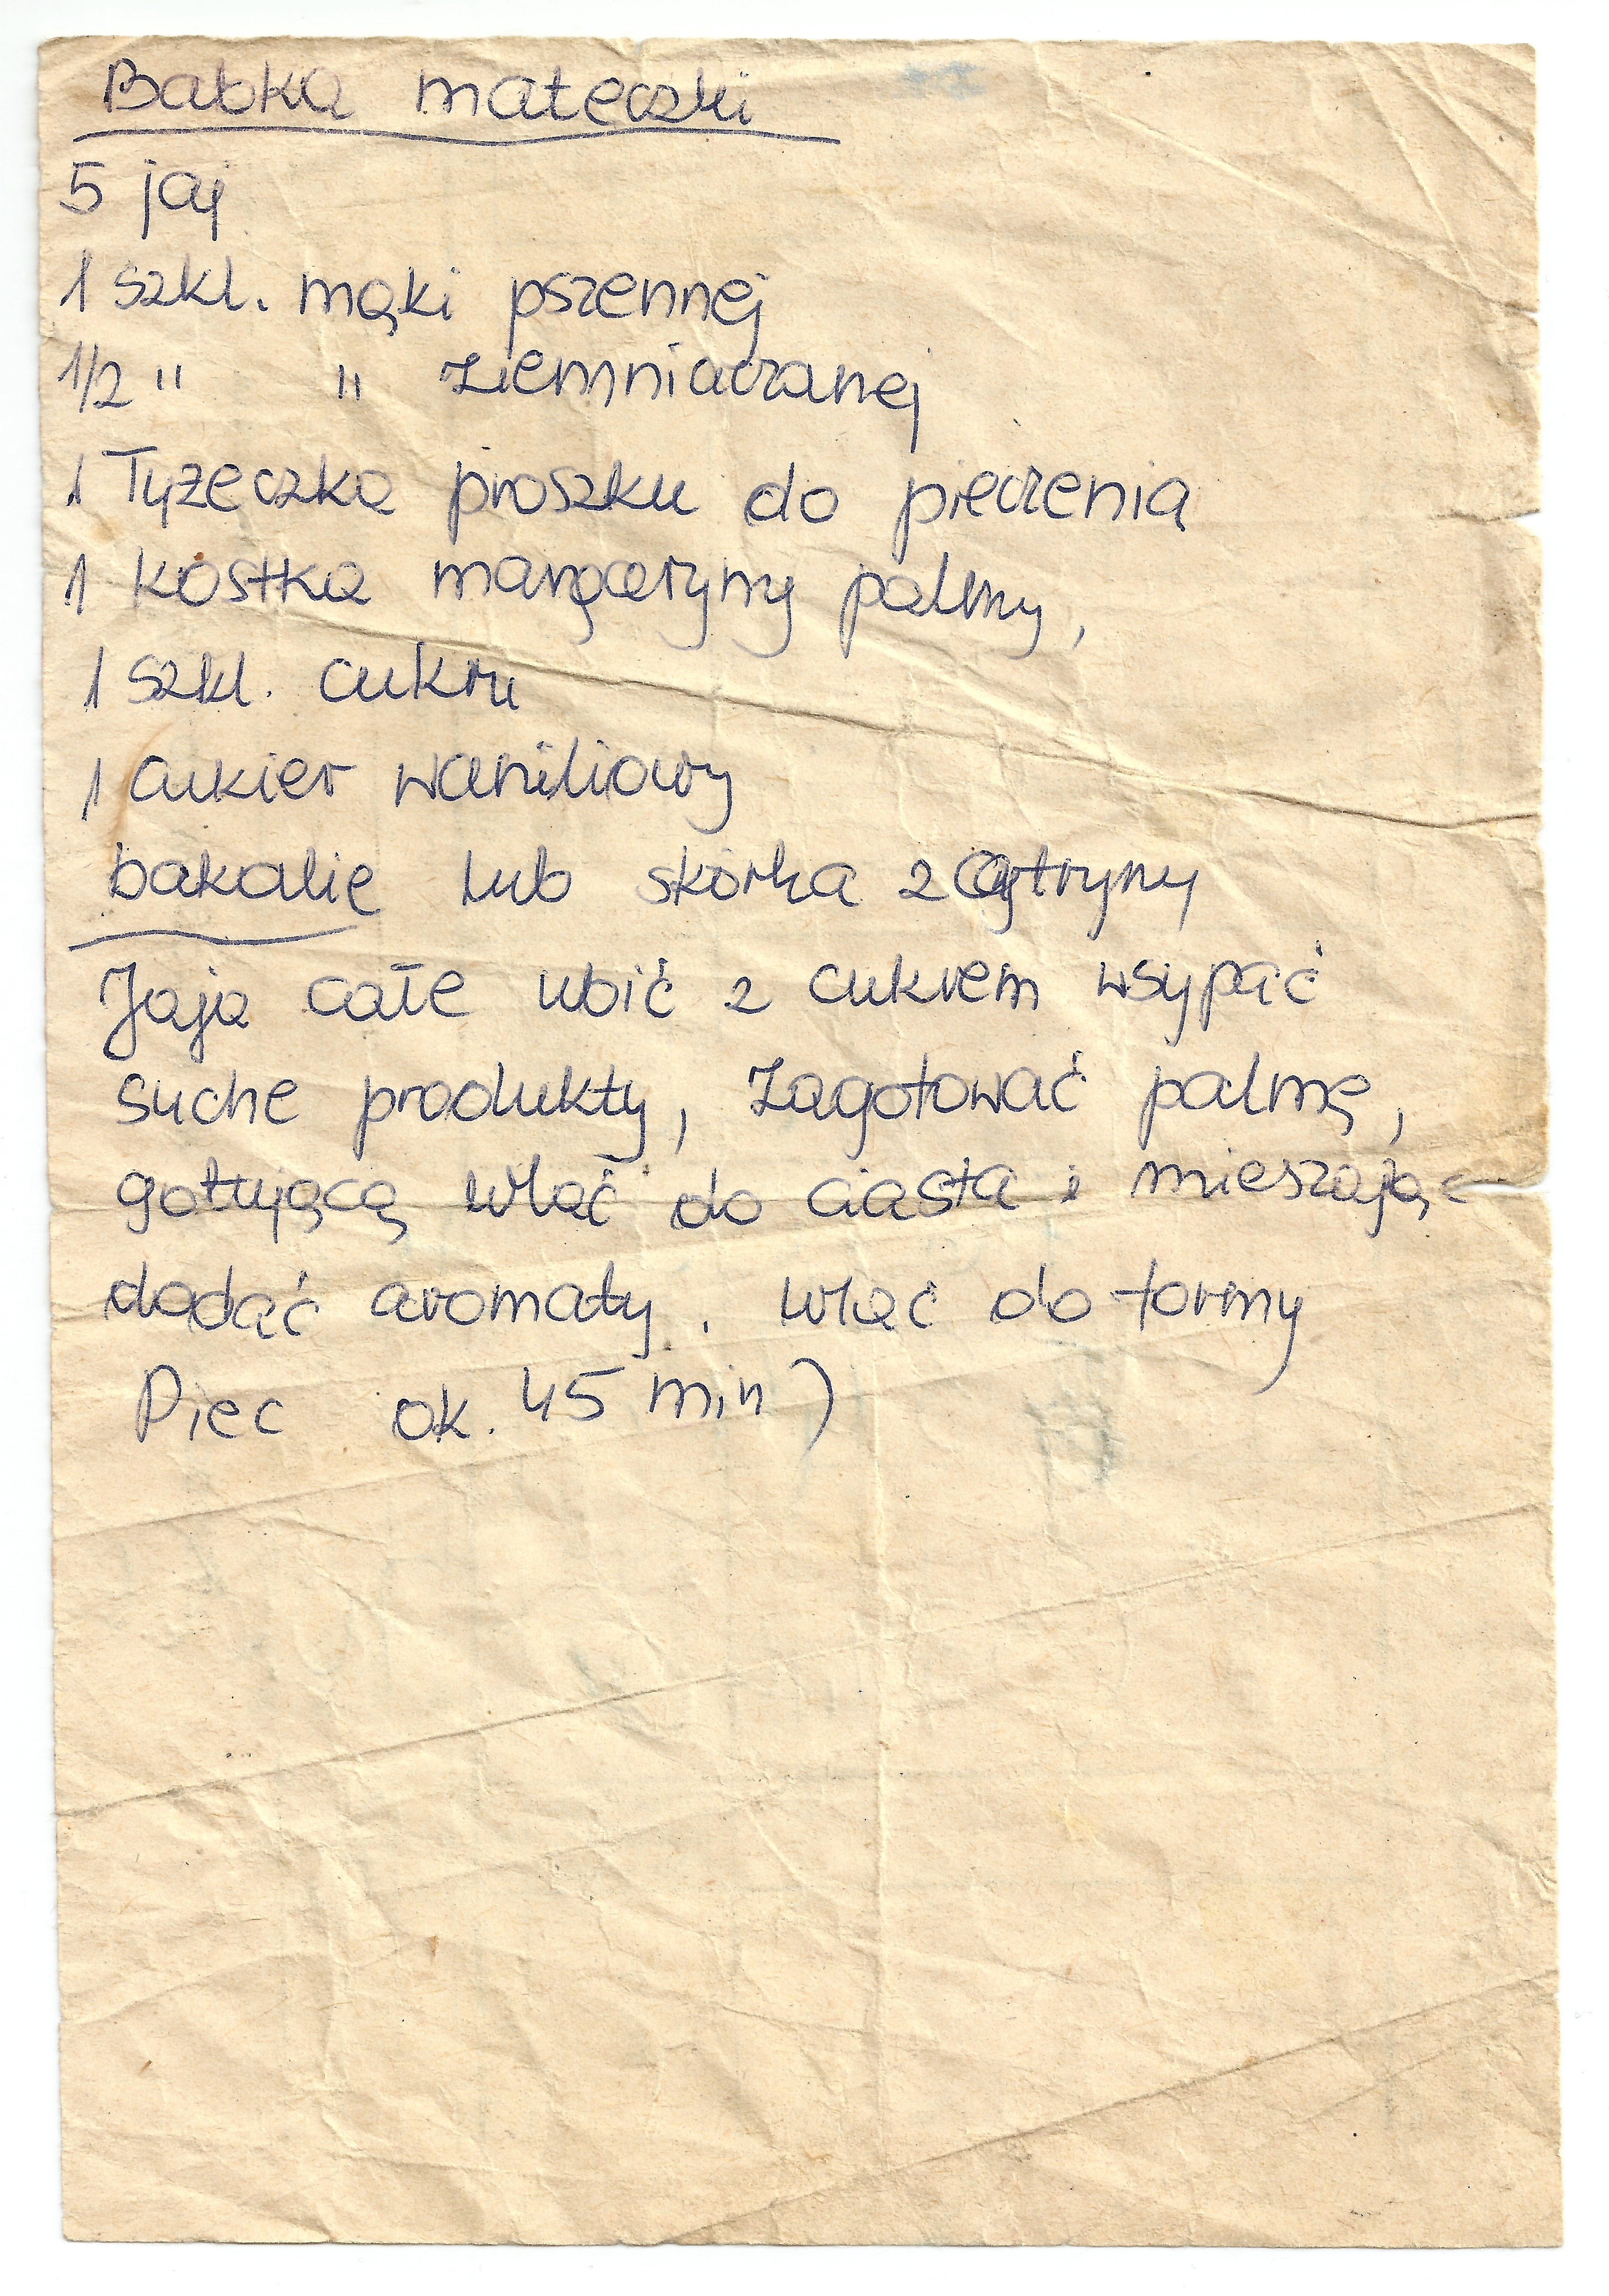 Babka mateczki
5 jaj
1 szkl. mąki pszennej
1/2 " " ziemniaczanej
1 łyżeczka proszku do pieczenia
1 kostka margaryny palmy,
1 szkl. cukru
1 cukier waniliowy
bakalie lub skórka z cytryny
Jaja całe ubić z cukrem wsypać
suche produkty, Zagotować palmę,
gotującą wlać do ciasta i mieszając
dodać aromaty. Wlać do formy
Piec ok. 45 min)